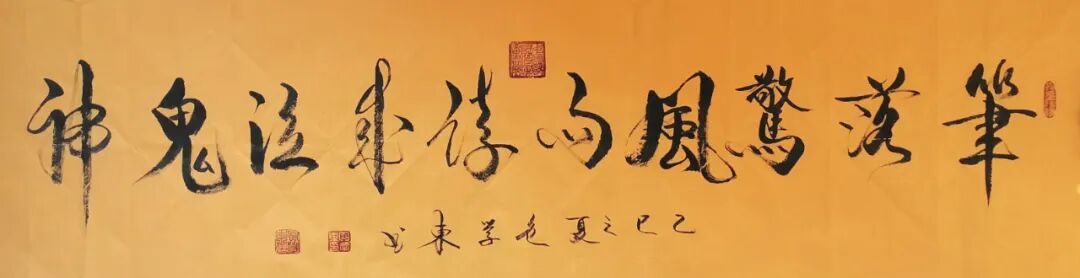 筆落驚風雨詩成泣鬼神
乙巳之夏毛学東书